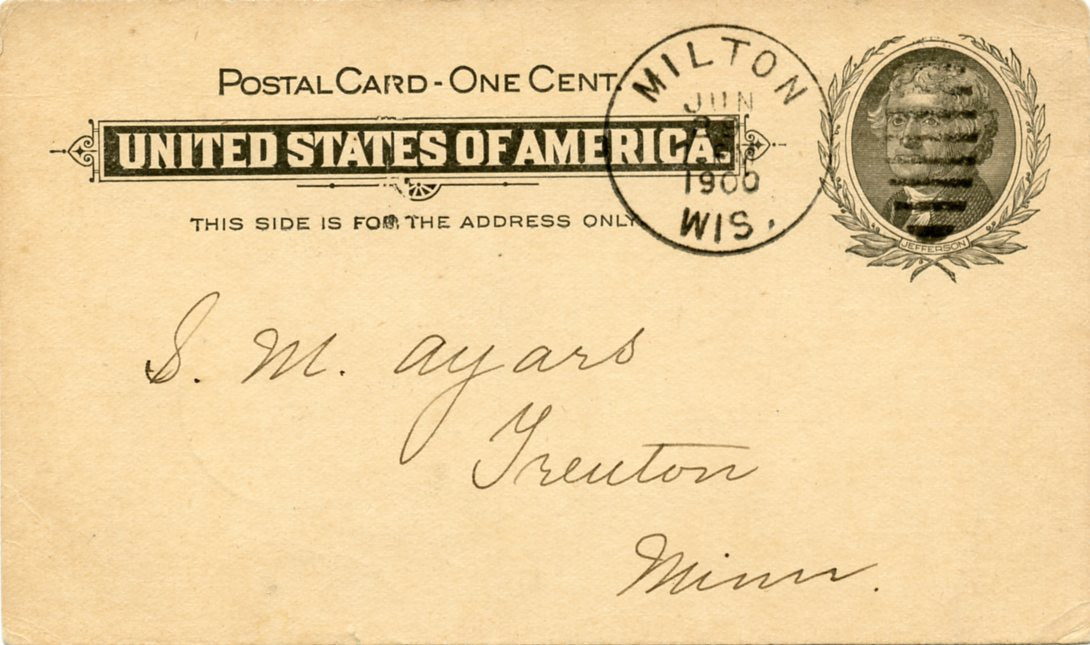 POSTAL CARD - ONE CENT.
UNITED STATES OF AMERICA.
THIS SIDE IS FOR THE ADDRESS ONLY
MILTON
JUN
1900
WIS.
JEFFERSON
S. M. Ayars
Trenton
Minn.